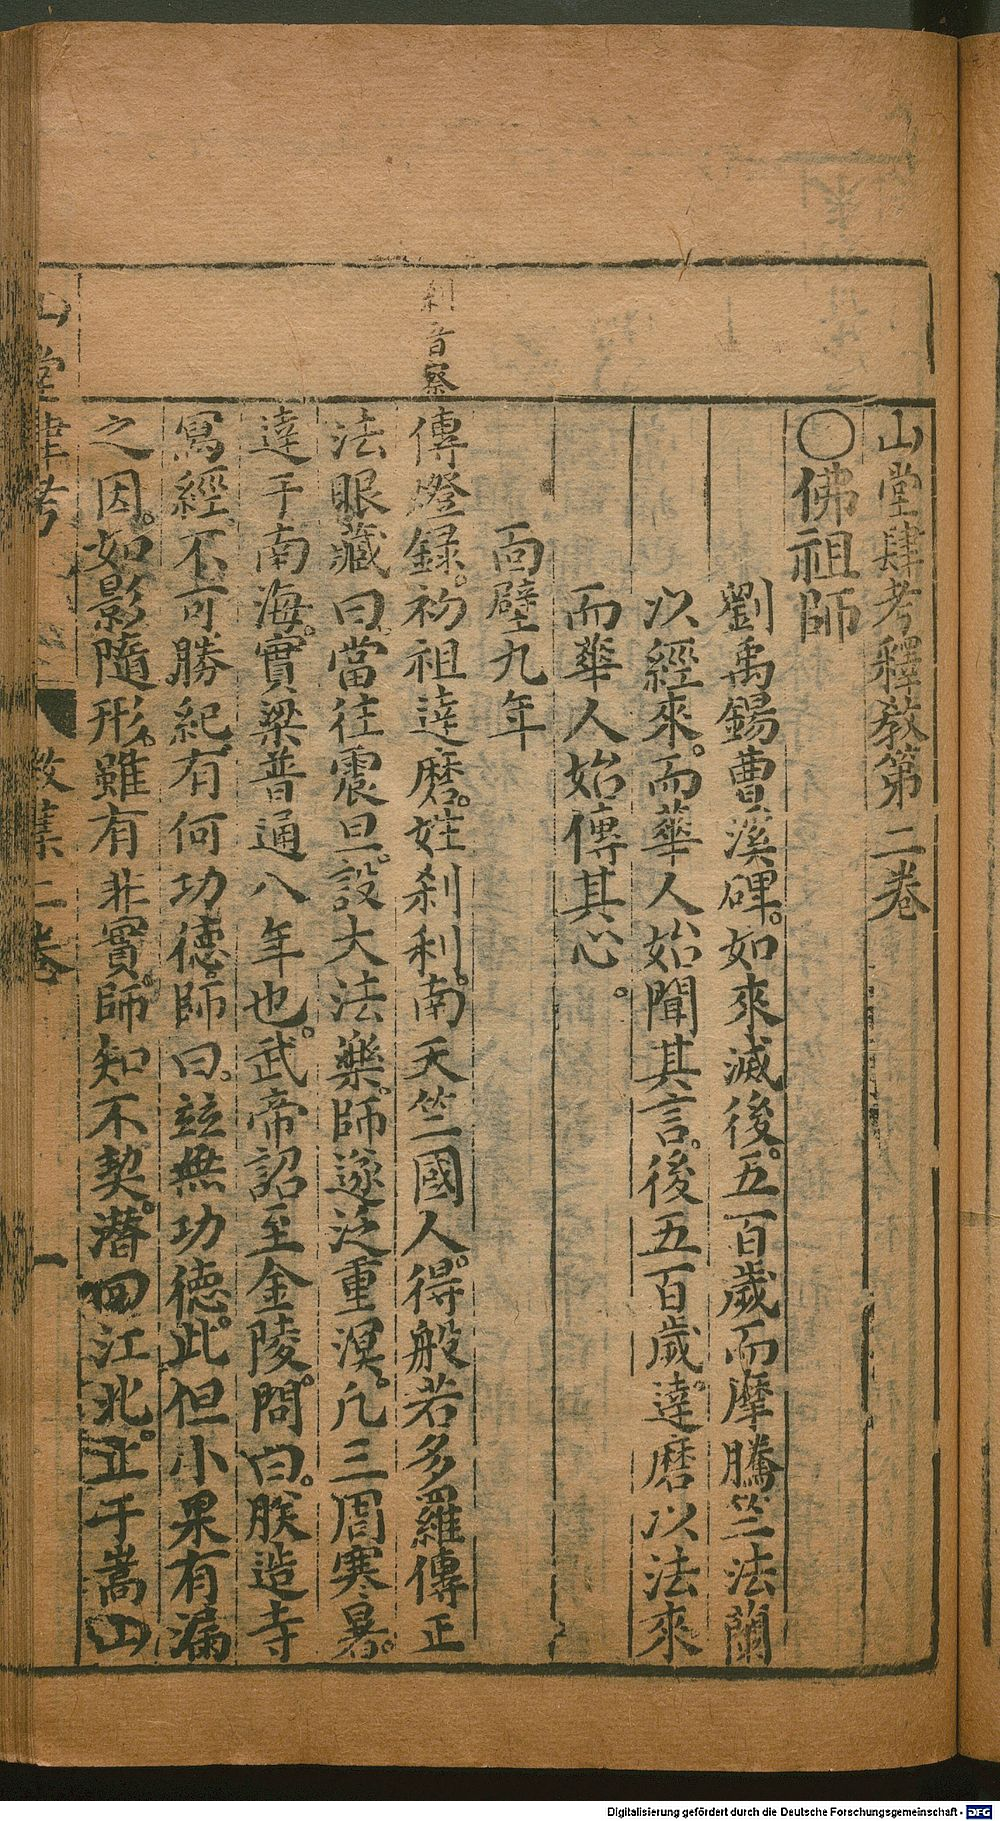 山堂肆考釋教第二卷
○佛祖師
劉禹錫曹溪碑。如來滅後。五百歲而摩騰竺法蘭
以經來。而華人始聞其言。後五百歲。達磨以法來
而華人始傳其心。
面壁九年
刹音察
傳燈録。初祖達磨。姓刹利。南天竺國人。得般若多羅傳正
法眼藏曰。當往震旦。設大法藥。師遂泛重溟。凡三周寒暑。
達于南海。實梁普通八年也。武帝詔至金陵。問曰。朕造寺
寫經。不可勝紀。有何功德。師曰。竝無功德。此但小果有漏
之因。如影隨形。雖有非實。師知不契。潛回江北。止于嵩山
山堂肆考
教集二卷
一
Digitalisierung gefördert durch die Deutsche Forschungsgemeinschaft - DFG